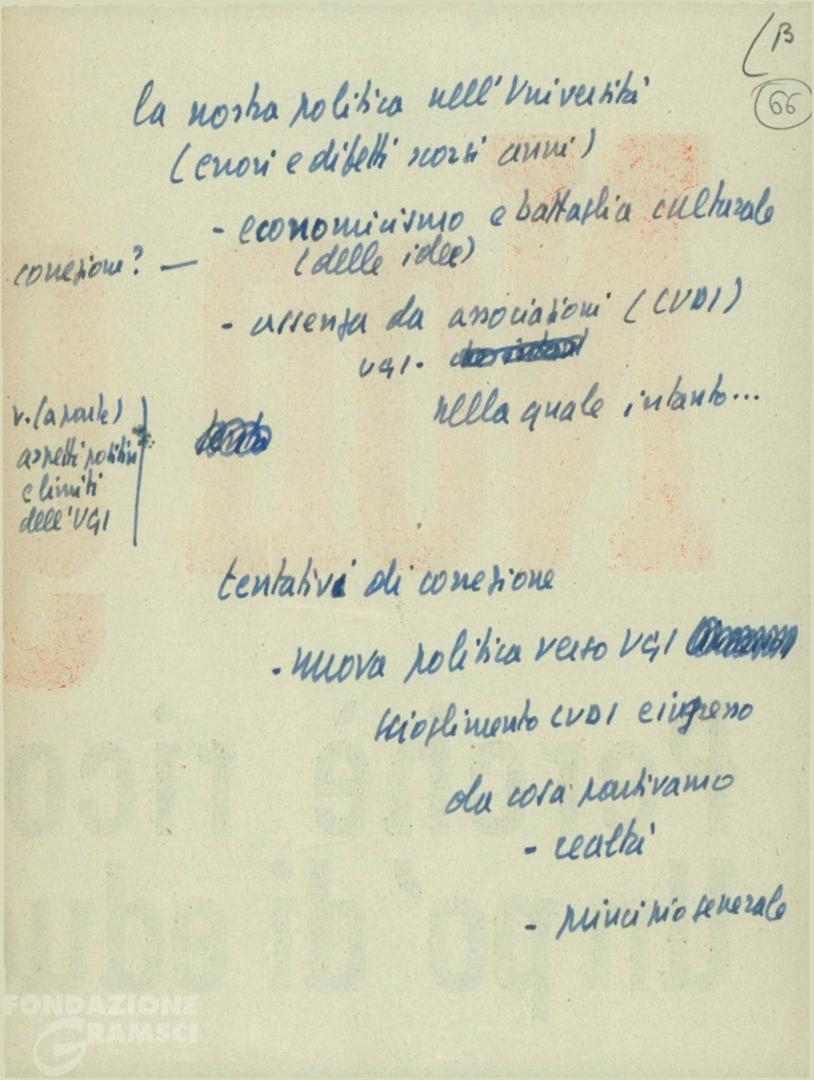 B
66
la nostra politica nell'Università
(errori e difetti scorsi anni)
- economicismo e battaglia culturale
(delle idee)
correzione? —
- assenza da associazioni (CUDI)
UGI.
nella quale intanto...
v. (a parte)
aspetti positivi
e limiti
dell'UGI
tentativi di correzione
- nuova politica verso UGI
scioglimento CUDI e ingresso
da cosa partivamo
- realtà
- principio generale
Perché rico
Un po' di edu
FONDAZIONE
GRAMSCI